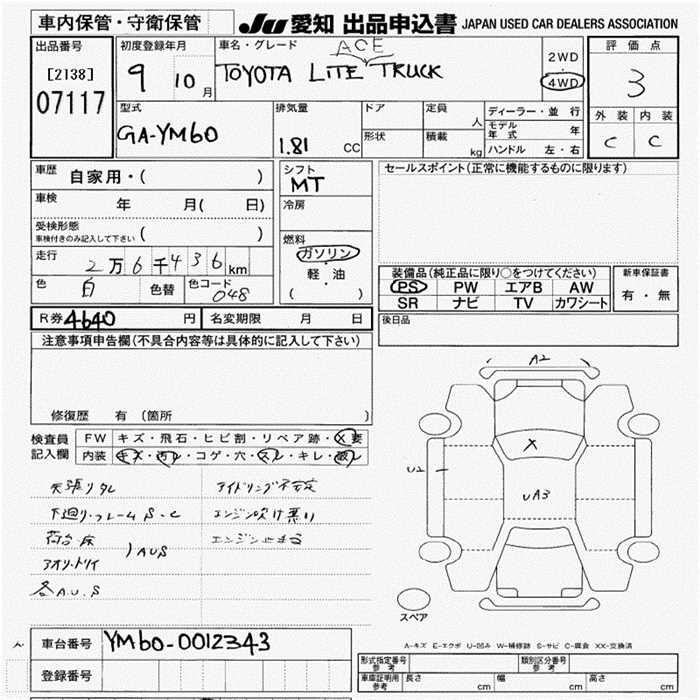 車内保管・守衛保管 JU 愛知 出品申込書 JAPAN USED CAR DEALERS ASSOCIATION
出品番号 [2138] 07117
初度登録年月 9 10 月
車名・グレード ACE
TOYOTA LITE TRUCK
2WD
4WD
評価点 3
外装 内装
C C
型式 GA-YM60
排気量 1.81 CC
ドア 形状
定員 人
積載 kg
ディーラー・並行
モデル年式 年
ハンドル 左・右
車歴 自家用・( )
車検 年 月( 日)
受検形態 ( )
車検付きのみ記入して下さい
走行 2万6千436km
色 白 色替 色コード 048
シフト MT
冷房
燃料
ガソリン
軽・油
( )
セールスポイント(正常に機能するものに限ります)
装備品(純正品に限り○をつけてください)
PS PW エアB AW
SR ナビ TV カワシート
新車保証書
有・無
R券 4640 円 名変期限 月 日
後日品
注意事項申告欄(不具合内容等は具体的に記入して下さい)
修復歴 有(箇所 )
検査員記入欄
FW キズ・飛石・ヒビ割・リペア跡・X要
内装 キズ・汚レ・コゲ・穴・スレ・キレ・破レ
天張りタレ アイドリング不安定
下廻り・フレームS・C エンジン吹け悪い
荷台床 エンジン止まる
アオリ・トリイ )AUS
各A.U.S
A2
X
U2
UA3
スペア
A-キズ E-エクボ U-凹み W-補修跡 S-サビ C-腐食 XX-交換済
車台番号 YM60-0012343
登録番号
形式指定番号 参考 類別区分番号 参考
車庫証明用 参考 長さ cm 幅 cm 高さ cm